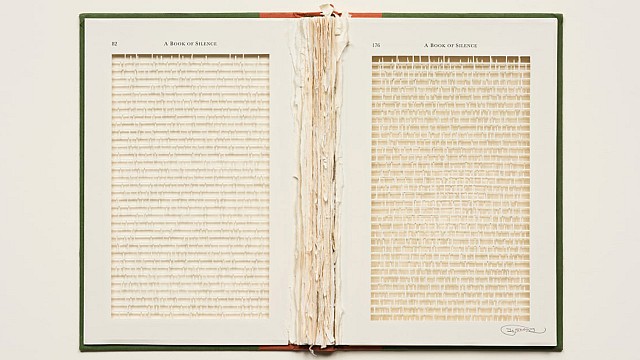 82 A BOOK OF SILENCE
176 A BOOK OF SILENCE